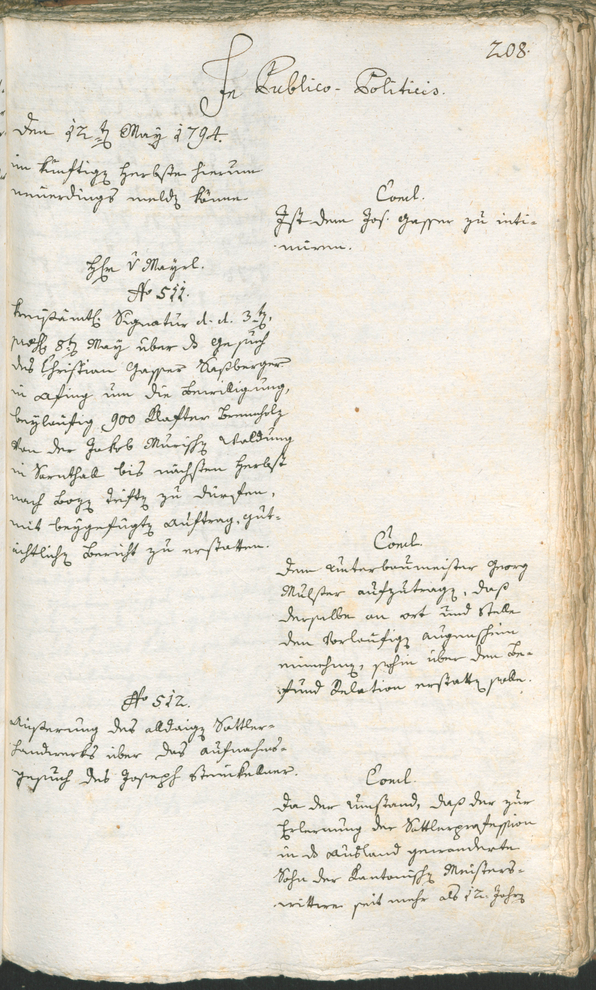 208.
In Publico-Politicis.
Den 12ten May 1794.
im künftigen Herbste hierum
neuerdings melden könne.
Concl.
Ist dem Jos. Gasser zu inti-
miren.
Hr. v. Mayrl.
No 511.
Kreisämtl. Signatur d. d. 3ten,
8ten May über das Gesuch
des Christian Gasser Kaßberger
in Afing um die Bewilligung,
beyläufig 900 Klafter Brennholz
von der Jakob Waldung
in Sarnthal bis nächsten Herbst
nach Bozen triften zu dürfen,
mit beygefügten Auftrag, gut-
ächtlichen Bericht zu erstatten.
Concl.
Dem Unterbaumeister Georg
Mulser aufzutragen, daß
derselbe an Ort und Stelle
den vorläufigen Augenschein
einnehmen, sohin über den Be-
fund Relation erstatten solle.
No 512.
Äußerung des alldaigen Sattler-
handwerks über das Aufnahms-
gesuch des Joseph
Concl.
Da der Umstand, daß der zur
Erlernung der Sattlerprofession
in das Ausland gewanderte
Sohn der Meisters-
wittwe seit mehr als 12. Jahren